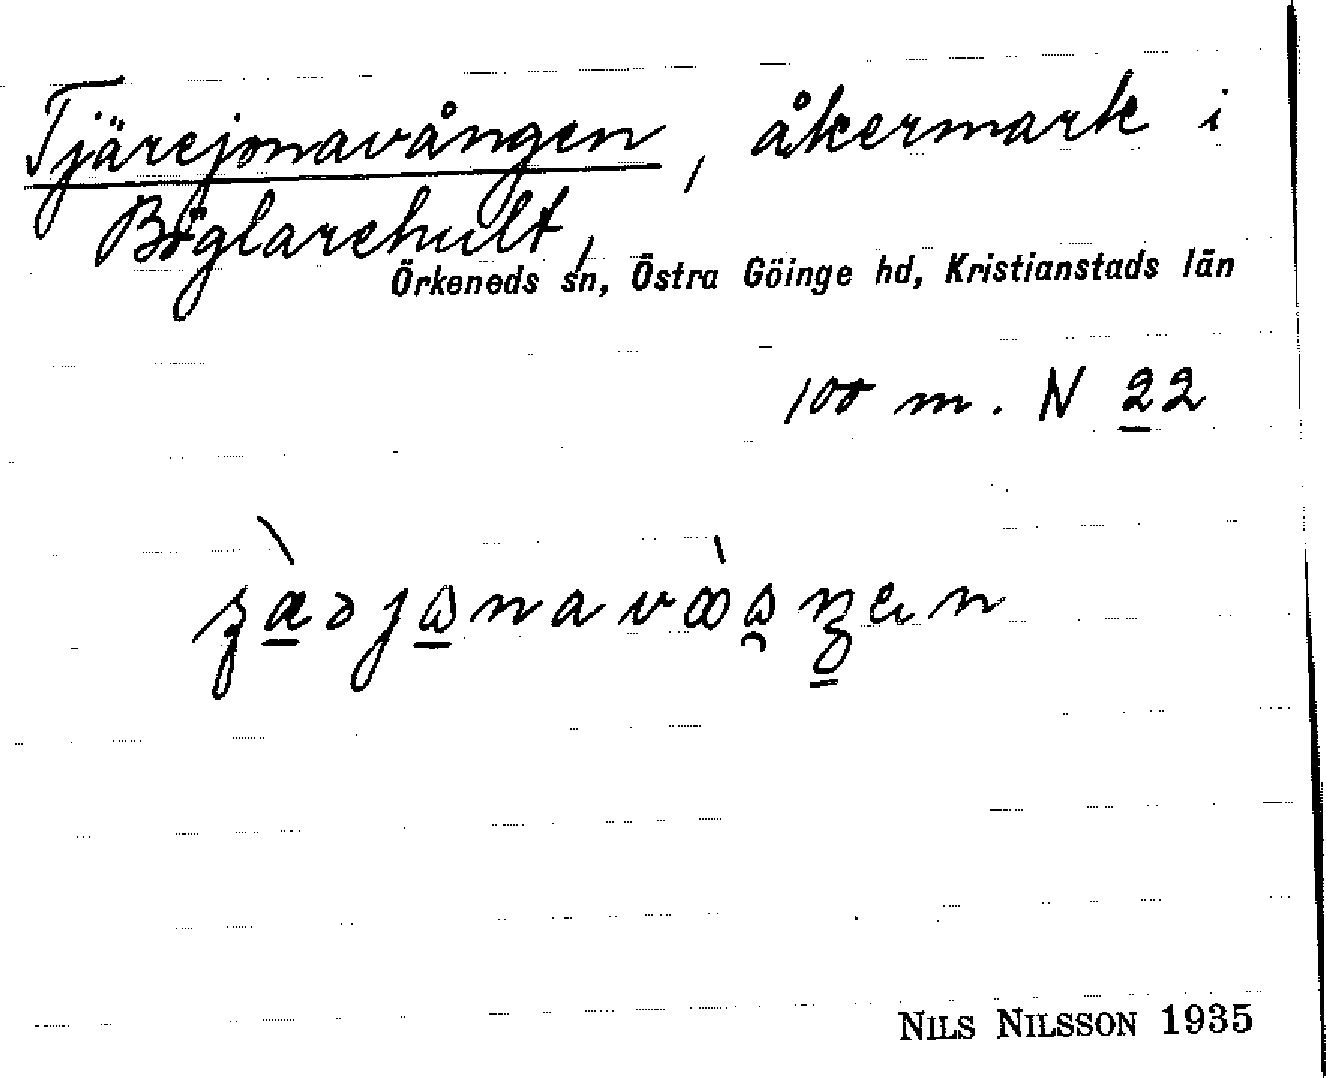 Tjärejonavången, åkermark i
Böglarehult,
Örkeneds sn, Östra Göinge hd, Kristianstads län
100 m. N 22
NILS NILSSON 1935